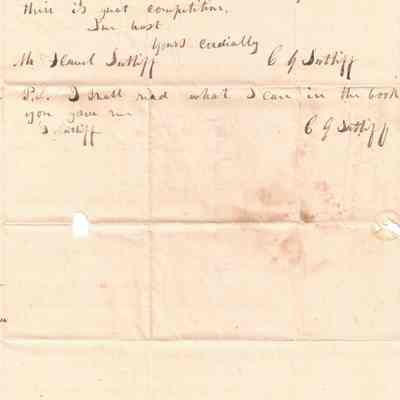 there is great competition.
In haste
Yours Cordially
Mr Samuel Sutliff C G Sutliff
P.S. I shall read what I can in the book
you gave me
S Sutliff C G Sutliff